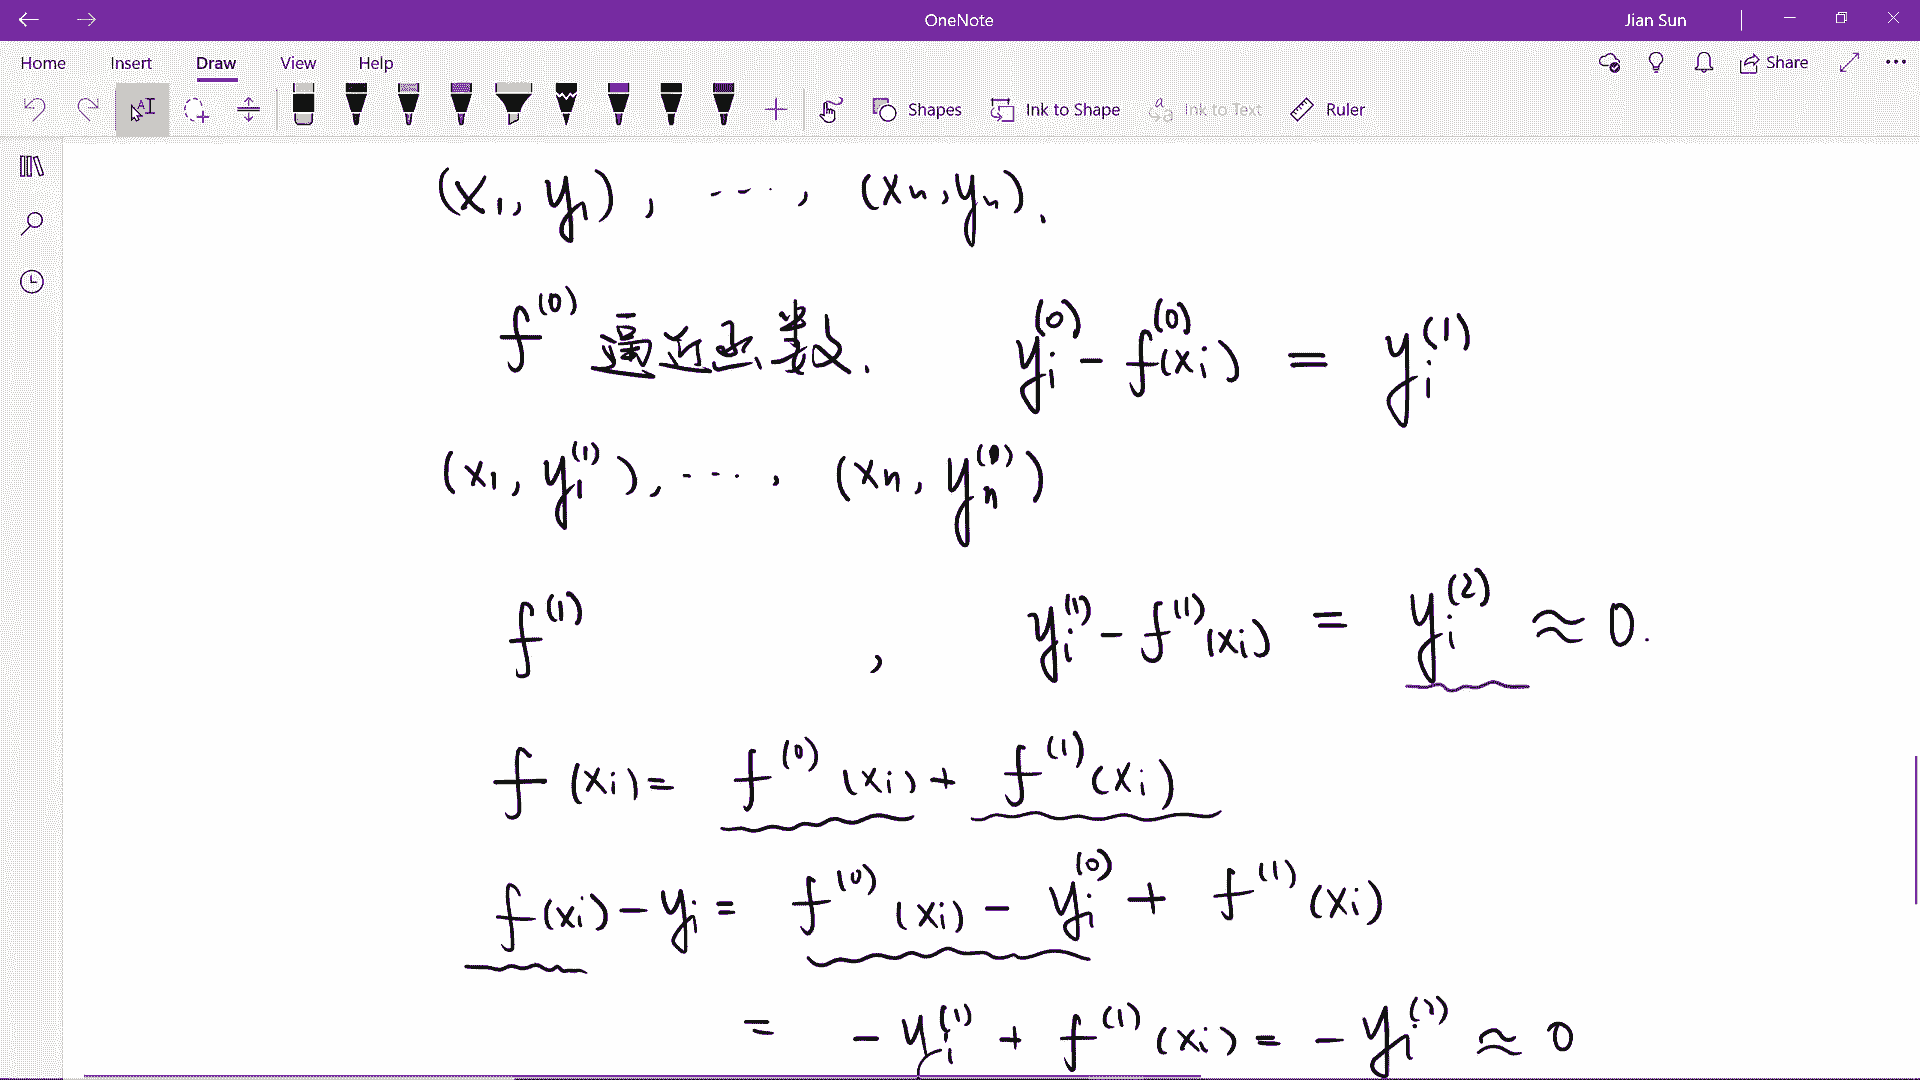 OneNote
Jian Sun
Home Insert Draw View Help
Share
Shapes Ink to Shape Ink to Text Ruler
(x₁, y₁), ⋯, (xₙ, yₙ).
f⁽⁰⁾ 逼近函数. yᵢ⁽⁰⁾ - f⁽⁰⁾(xᵢ) = yᵢ⁽¹⁾
(x₁, y₁⁽¹⁾), ⋯, (xₙ, yₙ⁽¹⁾)
f⁽¹⁾ , yᵢ⁽¹⁾ - f⁽¹⁾(xᵢ) = yᵢ⁽²⁾ ≈ 0.
f(xᵢ) = f⁽⁰⁾(xᵢ) + f⁽¹⁾(xᵢ)
f(xᵢ) - yᵢ = f⁽⁰⁾(xᵢ) - yᵢ⁽⁰⁾ + f⁽¹⁾(xᵢ)
= - yᵢ⁽¹⁾ + f⁽¹⁾(xᵢ) = - yᵢ⁽²⁾ ≈ 0